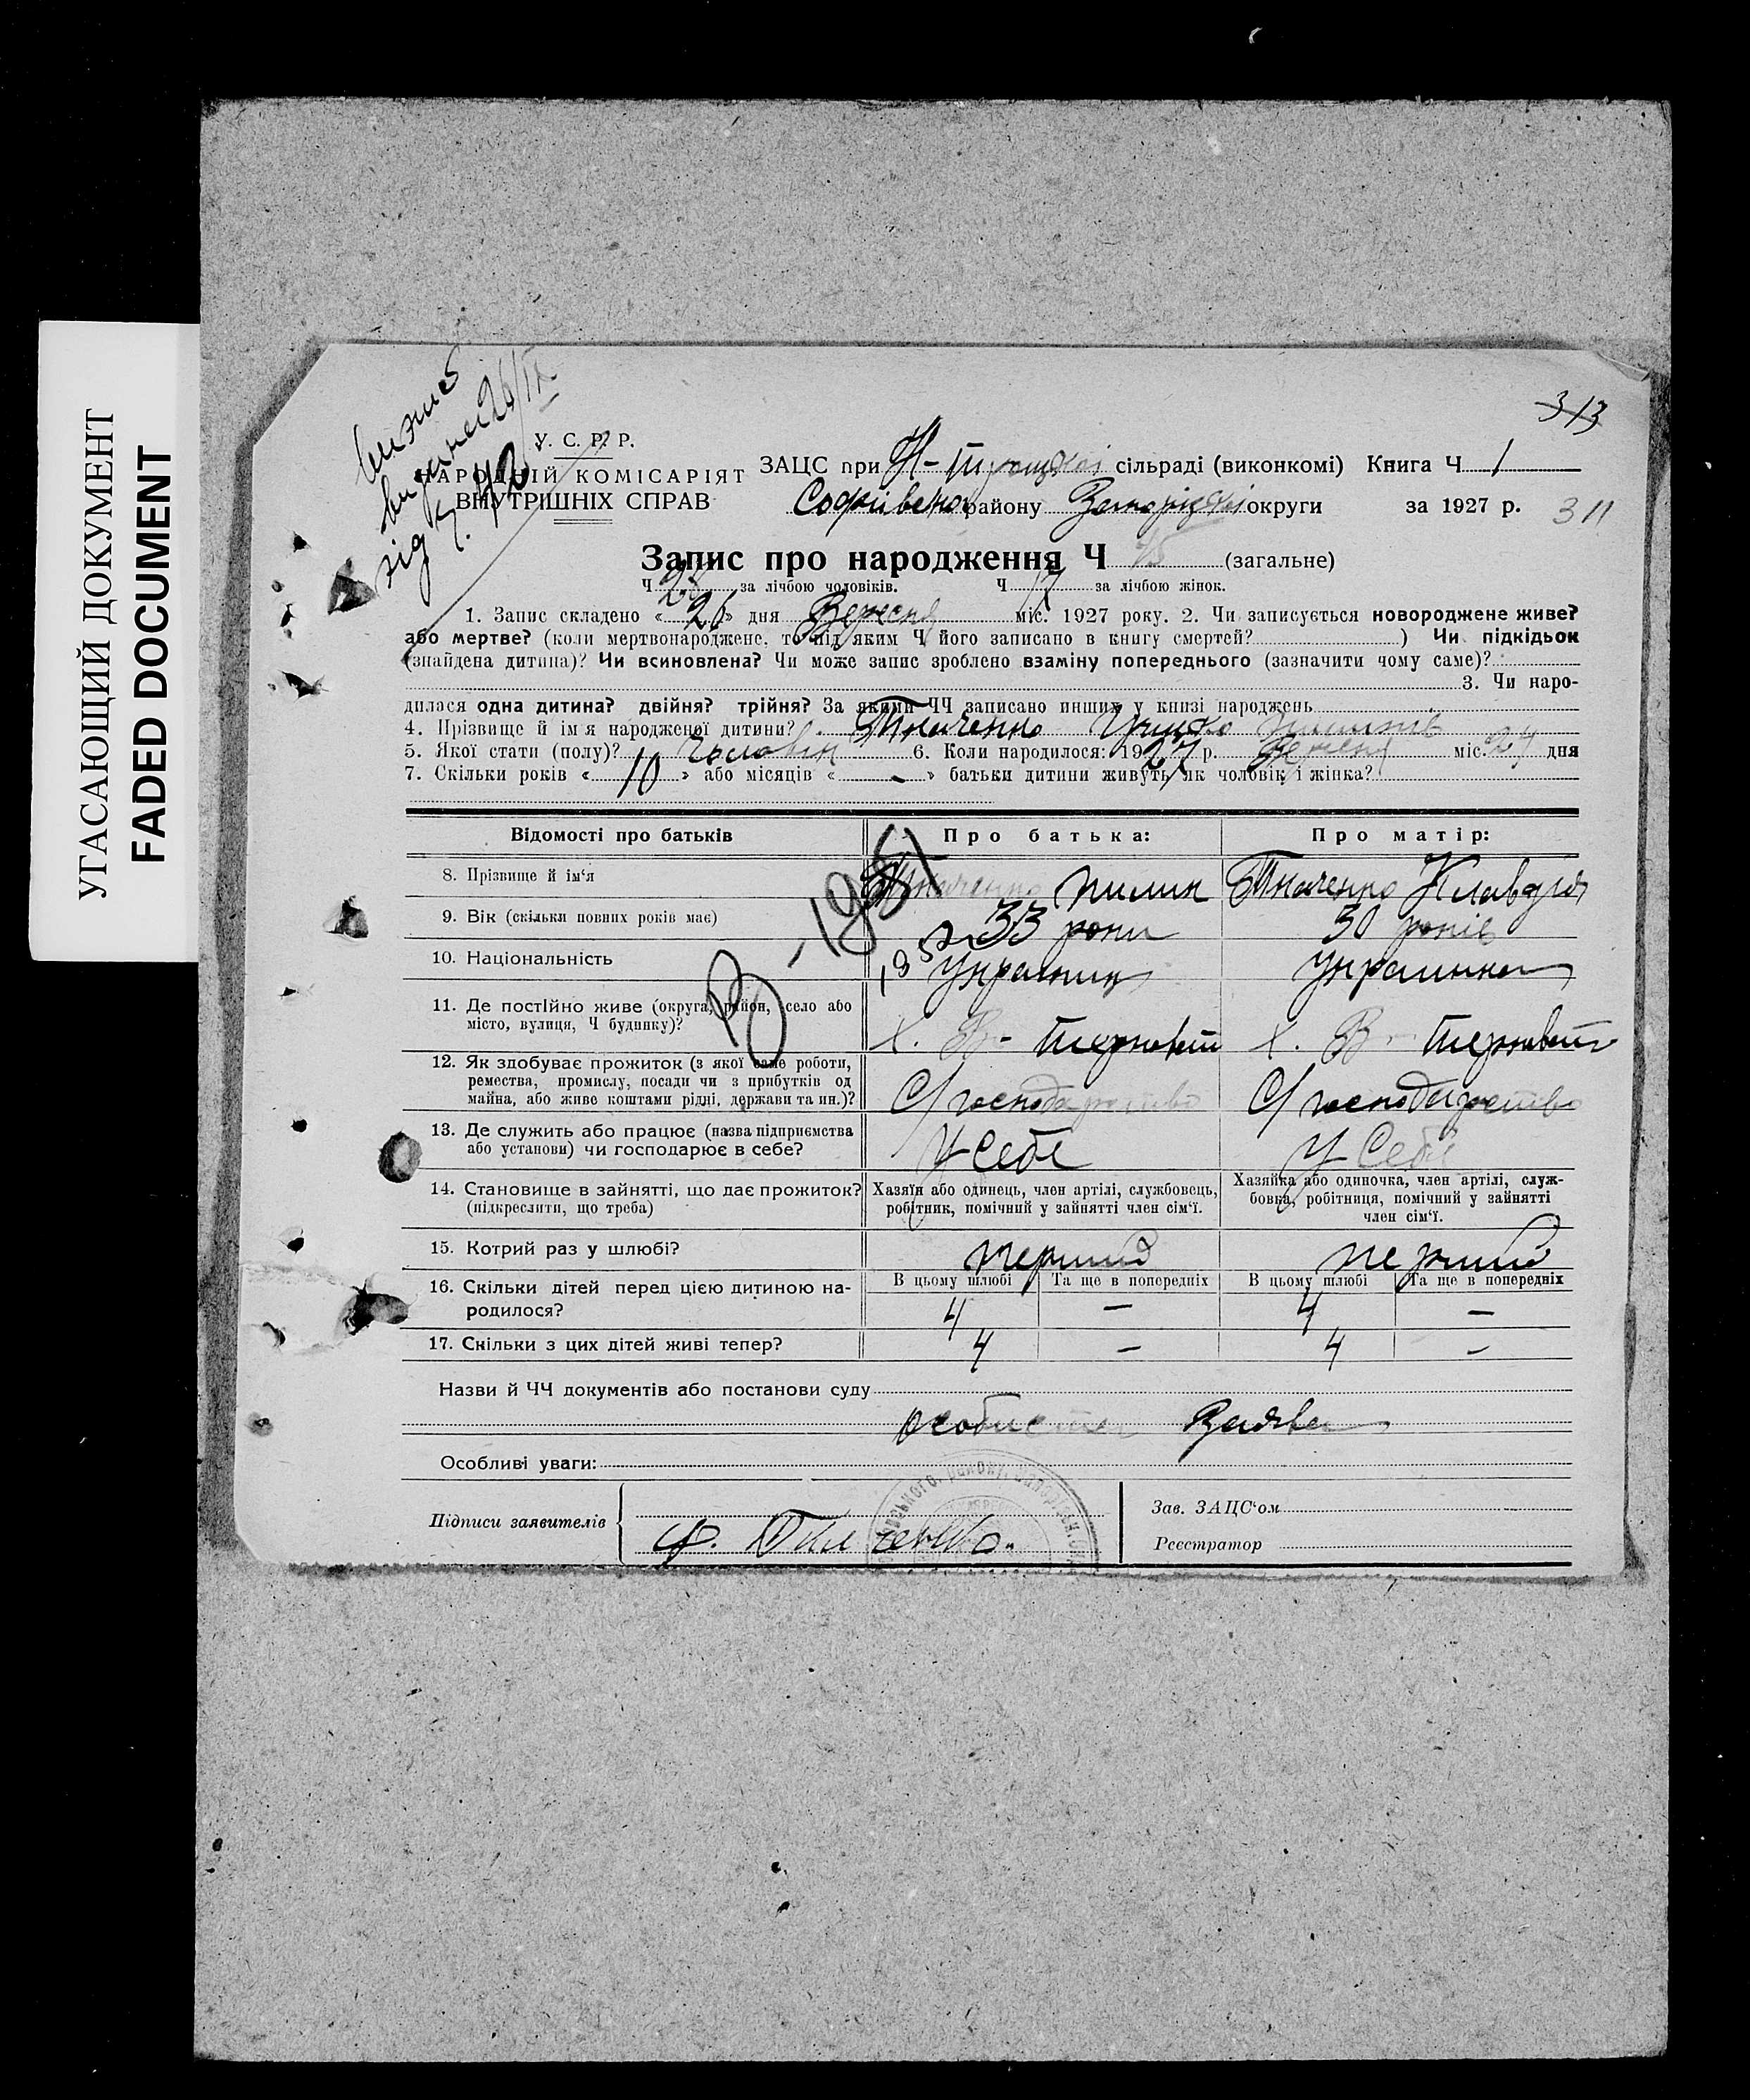 УГАСАЮЩИЙ ДОКУМЕНТ
FADED DOCUMENT
313
311
витяг
видана 26/IX
У. С. Р. Р.
НАРОДНІЙ КОМІСАРІЯТ
ВНУТРІШНІХ СПРАВ
ЗАЦС при сільраді (виконкомі) Книга Ч 1
Софіївськ району Запорізької округи за 1927 р.
Запис про народження Ч 45 (загальне)
Ч 28 за лічбою чоловіків. Ч 17 за лічбою жінок.
1. Запис складено «26» дня Вересня міс. 1927 року. 2. Чи записується новороджене живе?
або мертве? (коли мертвонароджене, то під яким Ч його записано в книгу смертей? ) Чи підкідьок
(знайдена дитина)? Чи всиновлена? Чи може запис зроблено взаміну попереднього (зазначити чому саме)?
3. Чи наро-
дилася одна дитина? двійня? трійня? За якими ЧЧ записано инших у книзі народжень
4. Прізвище й ім'я народженої дитини? Ткаченко
5. Якої стати (полу)? Чоловік 6. Коли народилося: 1927 р. Вересня міс. 24 дня
7. Скільки років «10» або місяців « - » батьки дитини живуть як чоловік і жінка?
Відомості про батьків Про батька: Про матір:
8. Прізвище й ім'я Ткаченко Пилип Ткаченко Клавдія
9. Вік (скільки повних років має) 33 роки 30 років
10. Національність Украинец Украинка
11. Де постійно живе (округа, район, село або
місто, вулиця, Ч будинку)? х. В-Терноват х. В-Терноват
12. Як здобуває прожиток (з якої саме роботи,
ремества, промислу, посади чи з прибутків од
майна, або живе коштами рідні, держави та ин.)? С/господарство С/господарство
13. Де служить або працює (назва підприємства
або установи) чи господарює в себе? У себе У себе
14. Становище в зайнятті, що дає прожиток?
(підкреслити, що треба)
Хазяїн або одинець, член артілі, службовець,
робітник, помічний у зайнятті член сім'ї.
Хазяйка або одиночка, член артілі, служ-
бовка, робітниця, помічний у зайнятті
член сім'ї.
15. Котрий раз у шлюбі? перший перший
16. Скільки дітей перед цією дитиною на-
родилося?
В цьому шлюбі Та ще в попередніх В цьому шлюбі Та ще в попередніх
4 – 4 –
17. Скільки з цих дітей живі тепер? 4 – 4 –
Назви й ЧЧ документів або постанови суду
особиста заява
Особливі уваги:
Підписи заявителів
Зав. ЗАЦС'ом
Реєстратор